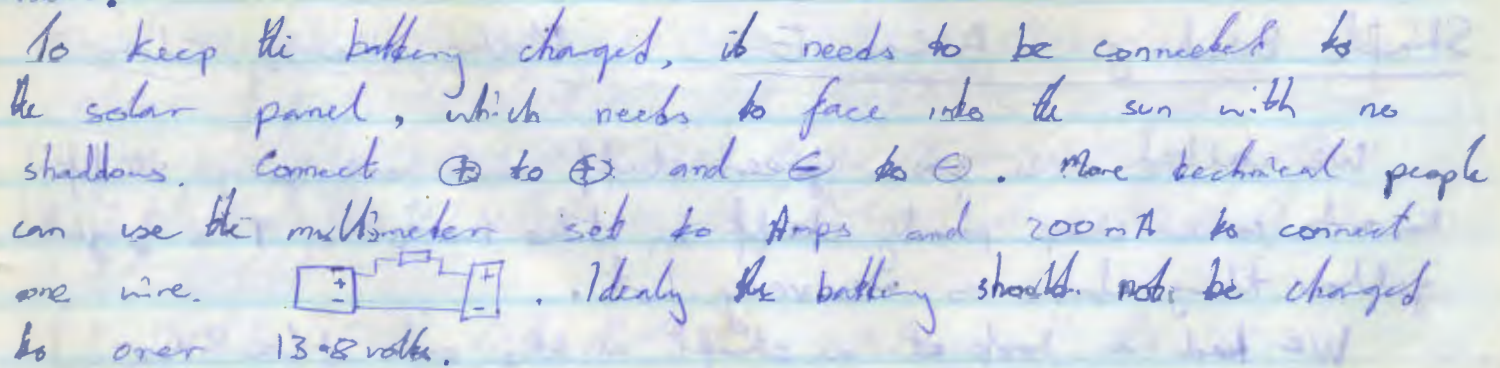 To keep the battery charged, it needs to be connected to
the solar panel, which needs to face into the sun with no
shaddows. Connect ⊕ to ⊕ and ⊖ to ⊖. More technical people
can use the multimeter set to Amps and 200mA to connect
one wire. + - + - . Idealy the battery should not be charged
to over 13.8 volts.